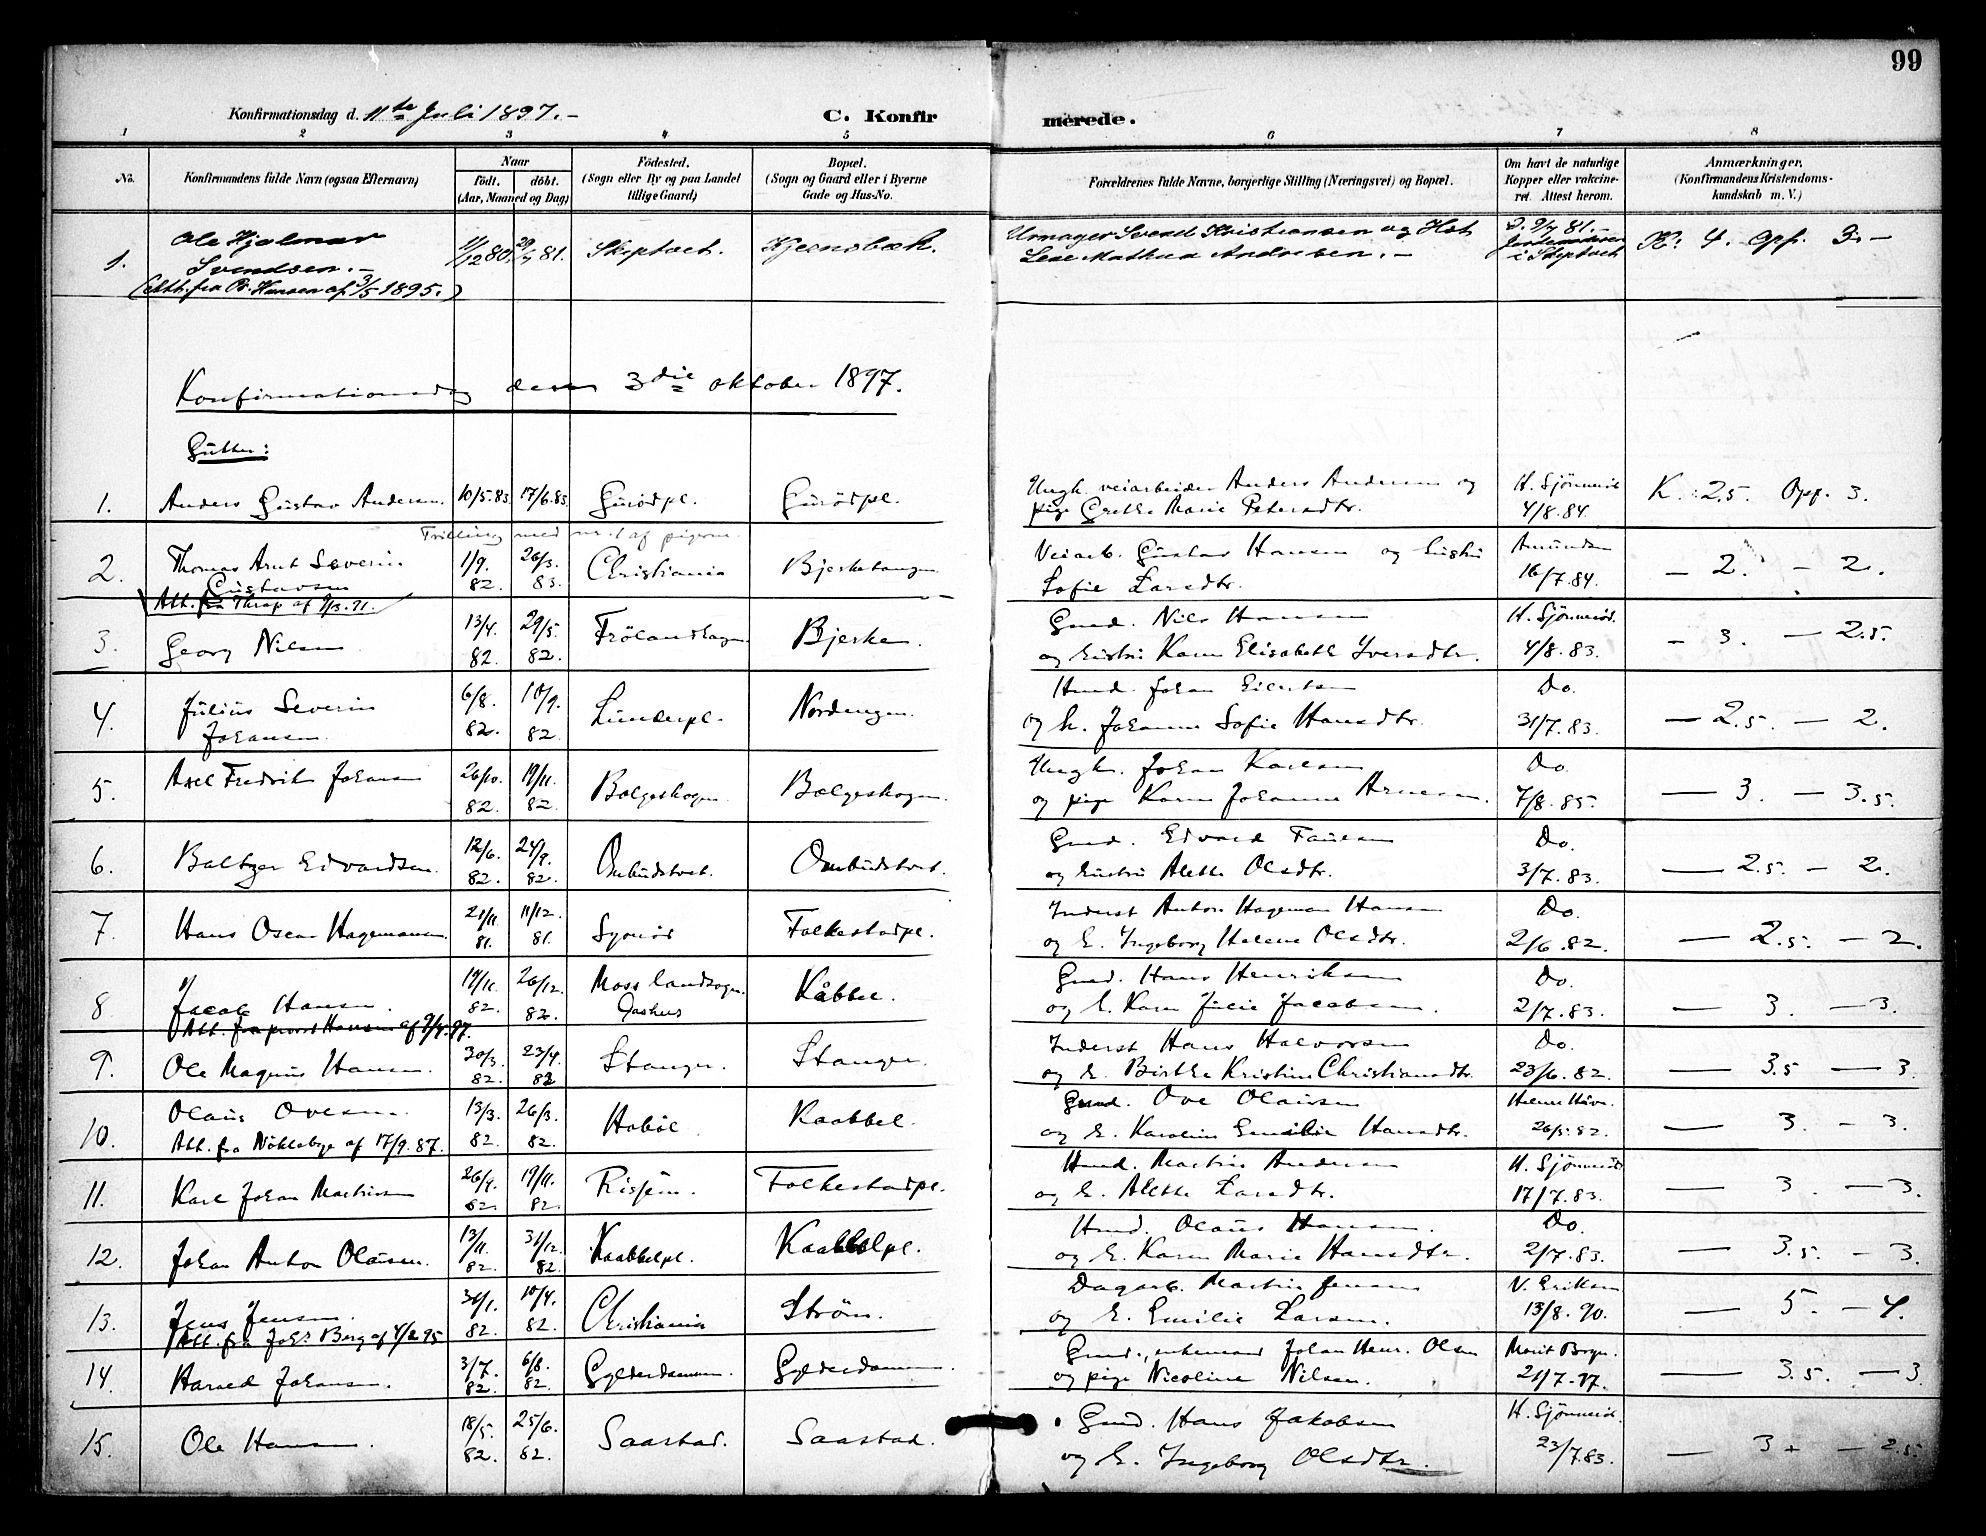 99
Konfirmationsdag d. 11te Juli 1897.
C. Konfirmerede.
1 2 3 4 5 6 7 8
No.
Konfirmandens fulde Navn (ogsaa Efternavn)
Naar
födt. döbt.
(Aar, Maaned og Dag)
Födested.
(Sogn eller By og paa Landet
tillige Gaard)
Bopæl.
(Sogn og Gaard eller i Byerne
Gade og Hus-No.
Forældrenes fulde Navne, borgerlige Stilling (Næringsvei) og Bopæl.
Om havt de naturlige
Kopper eller vakcine-
ret. Attest herom.
Anmærkninger.
(Konfirmandens Kristendoms-
kundskab m. V.)
1. Ole Hjalmar
Svendsen.
(Att. fra Pr. Hansen af 3/5 1895.)
11/12 80. 29/7 81. Skiptvet. Kjernsbæk.
Urmager Svend Kristiansen og Hst.
Lese Mathea Andresen.
D. 9/7 81.
i Skiptvet
K: 4. Opf. 3.
Konfirmationsdag den 3die oktober 1897.
Gutter:
1. Anders Gustav Andersen. 10/5.83. 17/6.83. Gurödpl. Gurödpl. Ungk. veiarbeider Anders Andersen og
pige Grethe Marie Petersdtr. H. Sjönneröd 4/8.84. K. 2.5. Opf. 3.
Trilling med nr. 1 af pigerne.
2. Thomas Arnt Severin
Gustavsen
Att. fra Thrap af 9/3.91.
1/9. 82. 26/3. 83. Christiania Bjerketangen Veiarb. Gustav Hansen og hustru
Sofie Larsdtr. Amundsen 16/7.84. — 2. — 2.
3. Georg Nilsen 13/4. 82. 29/5. 82. Frölandhagen Bjerke Gmd. Nils Hansen
og hustru Karen Elisabeth Iversdtr. H. Sjönneröd. 4/8.83. — 3. — 2.5.
4. Julius Severin
Johansen. 6/8. 82. 10/9. 82. Lunderpl. Nordengen. Hmd. Johan Eilertsen
og h. Johanne Sofie Hansdtr. Do. 31/7.83. — 2.5. — 2.
5. Axel Fredrik Johansen 26/10. 82. 19/11. 82. Bolgeskogen. Bolgeskogen. Ungk. Johan Karlsen
og pige Karen Johanne Arnesen. Do. 7/8.85. — 3. — 3.5.
6. Baltzer Edvardsen. 12/6. 82. 24/9. 82. Ombudstvet. Ombudstvet. Gmd. Edvard Paulsen
og hustru Alette Olsdtr. Do. 3/7.83. — 2.5. — 2.
7. Hans Oscar Hagemansen. 21/11. 81. 11/12. 81. Folkestadpl. Inderst Anton Hageman Hansen
og h. Ingeborg Helene Olsdtr. Do. 2/6.82. — 2.5. — 2.
8 Jacob Hansen.
Att. fra provst Hansen af 9/4.97.
19/11. 82. 26/12. 82. Moss landsogn. Kåbbel. Gmd. Hans Henriksen
og h. Karen Julie Jacobsen. Do. 2/7.83. — 3. — 3.
9. Ole Magnus Hansen. 30/3. 82. 23/4. 82 Stanger. Stanger. Inderst Hans Halvorsen
og h. Birthe Kristine Christiansdtr. Do. 23/6.82. — 3.5 — 3.
10. Olaus Ovesen.
Att. fra Nöklebye af 17/9.87.
13/3. 82. 26/3. 82. Hoböl. Kaabbel. Gmd. Ove Olausen
og h. Karoline Emilie Hansdtr. 26/5.82. — 3. — 3.
11. Karl Johan Martinsen 26/9. 82. 19/11. 82. Risjem. Folkestadpl. Hmd. Martin Andersen
og h. Alette Larsdtr. H. Sjönneröd 17/7.83. — 3. — 3.
12. Johan Anton Olausen. 13/11. 82. 31/12. 82. Kaabbelpl. Kaabbelpl. Hmd. Olaus Hansen.
og h. Karen Marie Hansdtr. Do. 2/7.83. — 3.5. — 3.
13. Jens Jensen.
Att. fra Johs Berg af 4/2 95
30/1. 82. 10/4. 82. Christiania Ström. Dagarb. Martin Jensen
og h. Emilie Larsen. V. Eriksen 13/8.90. — 5. — 4.
14. Harald Johansen. 3/7. 82. 6/8. 82. Gylderdammen. Gylderdammen. Gmd., enkemand Johan Henr. Olsen
og pige Nicoline Nilsen. 21/7.87. — 3.5. — 3.
15. Ole Hansen. 18/5. 82. 25/6. 82. Saastad. Saastad. Gmd. Hans Jakobsen
og h. Ingeborg Olsdtr. H. Sjönneröd. 23/7.83. — 3+ — 2.5.